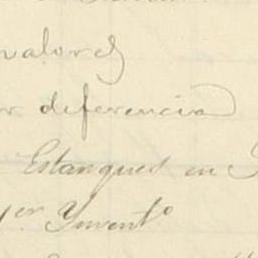 valores
or diferencia
Estanques en
yer Ynvento